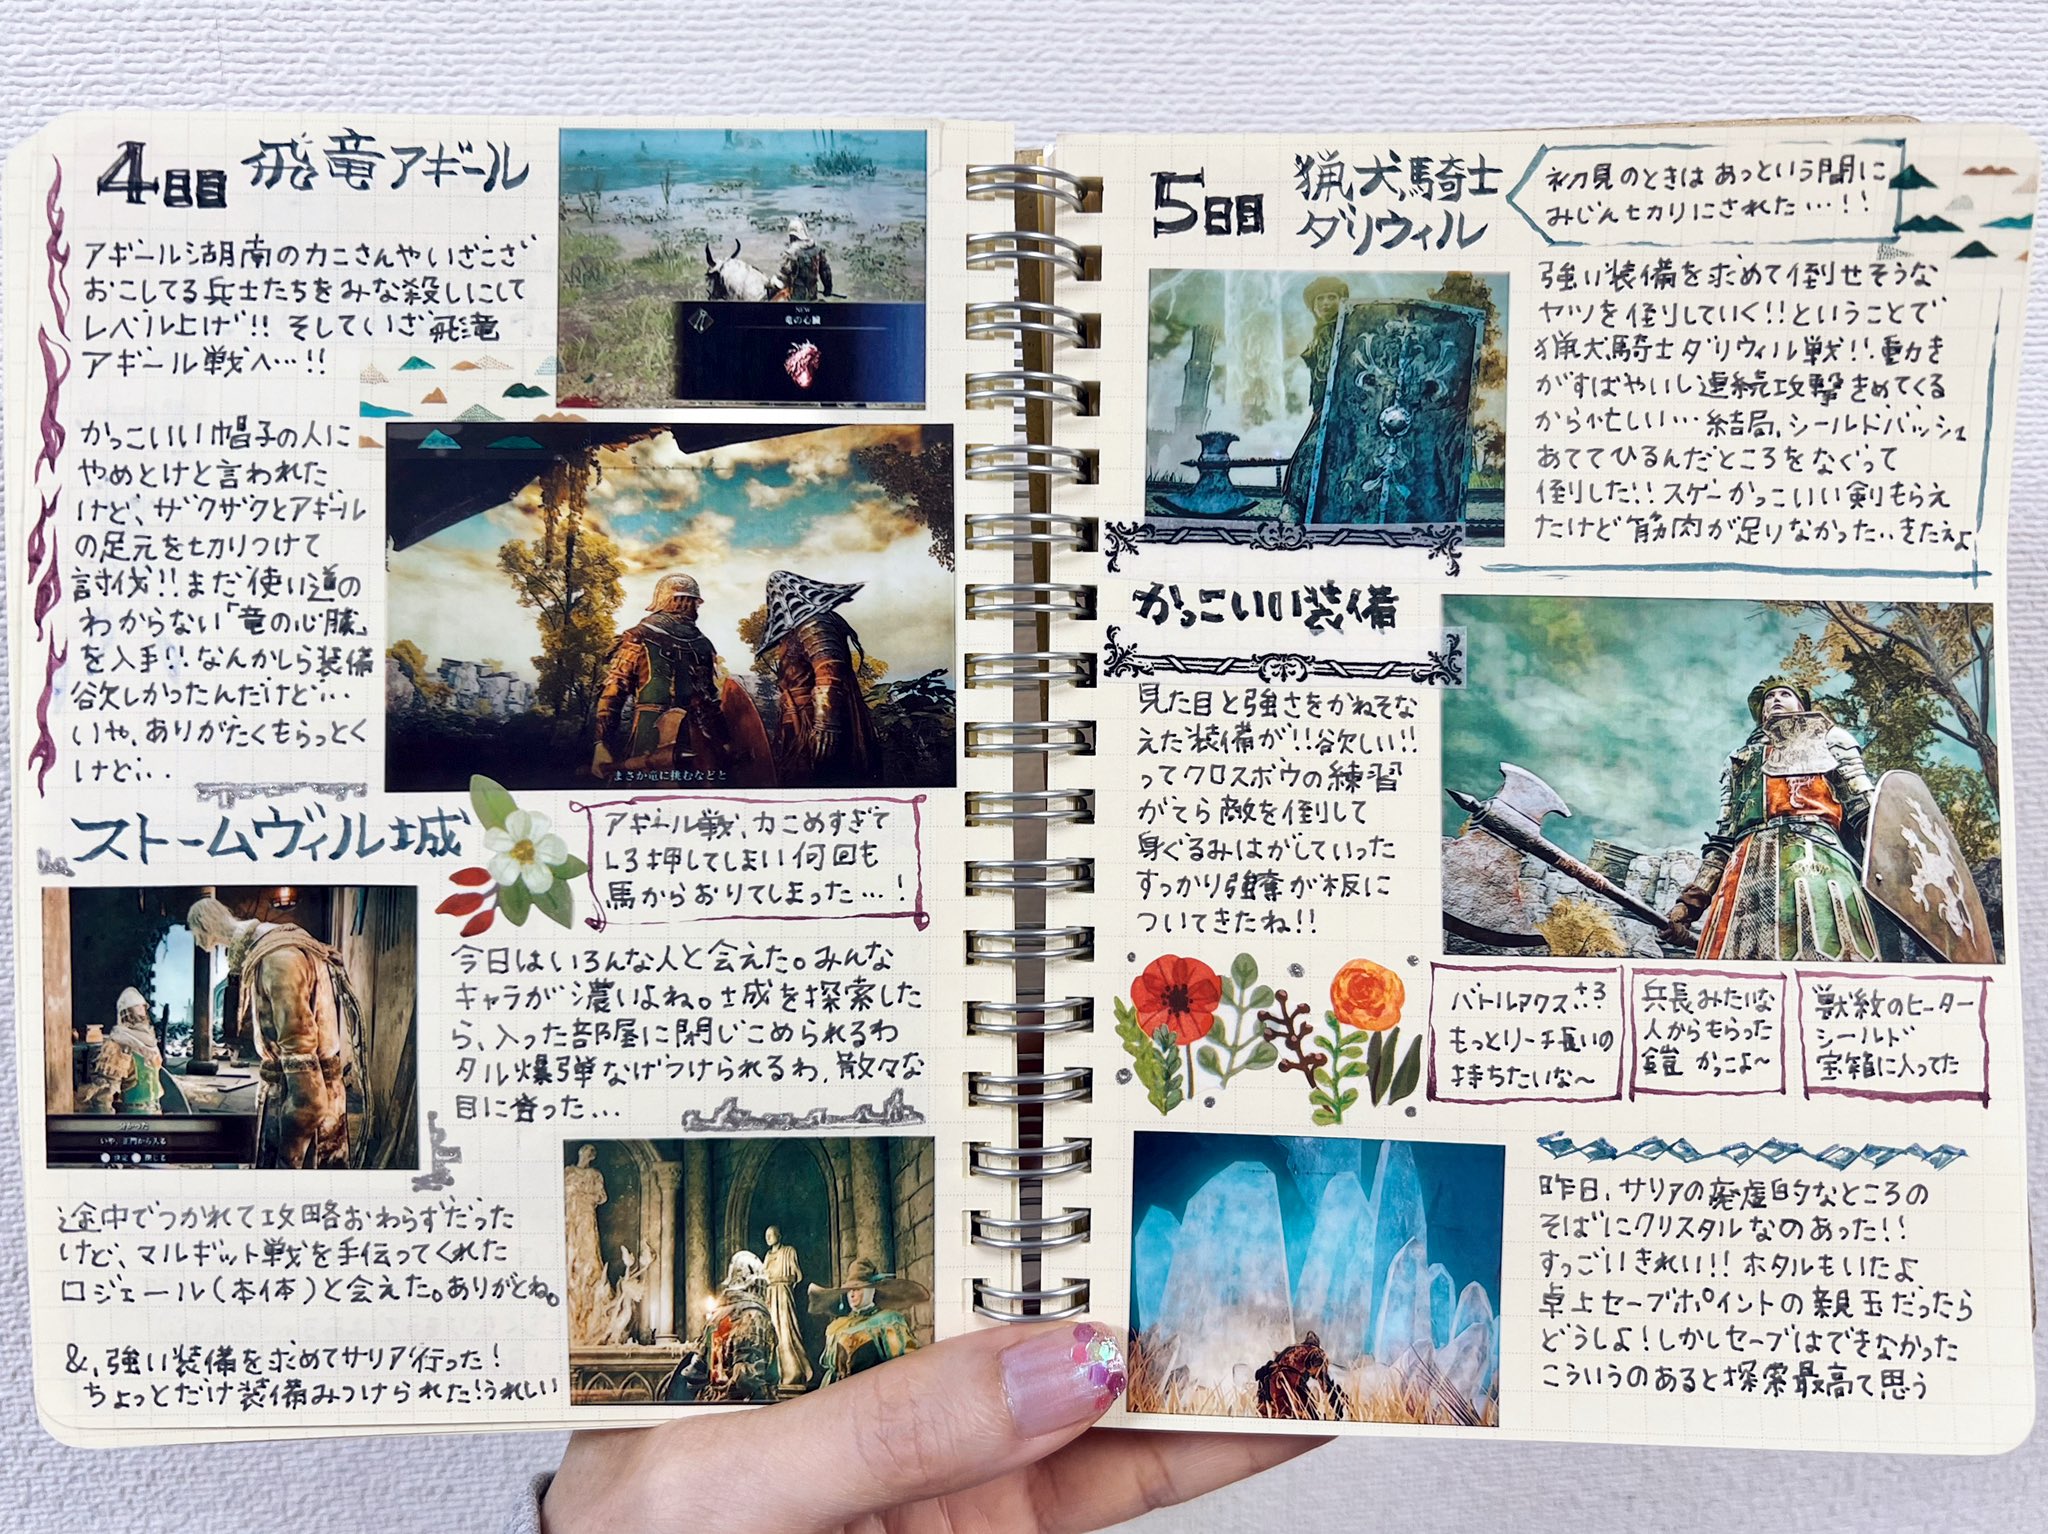 4日目 飛竜アギール
アギール湖南のカニさんやいざこざ
おこしてる兵士たちをみな殺しにして
レベル上げ!! そしていざ飛竜
アギール戦へ…!!
NEW
竜の心臓
かっこいい帽子の人に
やめとけと言われた
けど、ザクザクとアギール
の足元を切りつけて
討伐!!まだ使い道の
わからない「竜の心臓」
を入手!!なんかしら装備
欲しかったんだけど…
いや、ありがたくもらっとく
けど…
まさか竜に挑むなどと
ストームヴィル城
アギール戦、カこめすぎて
L3押してしまい何回も
馬からおりてしまった…!
分かった
いや、正門から入る
決定 閉じる
今日はいろんな人と会えた。みんな
キャラが濃いよね。城を探索した
ら、入った部屋に閉じこめられるわ
タル爆弾なげつけられるわ、散々な
目に登った…
途中でつかれて攻略おわらずだった
けど、マルギット戦を手伝ってくれた
ロジェール(本体)と会えた。ありがとね。
&、強い装備を求めてサリア行った!
ちょっとだけ装備みつけられた!うれしい
5日目 猟犬騎士
ダリウィル
初見のときはあっという間に
みじん切りにされた…!!
強い装備を求めて倒せそうな
ヤツを倒していく!!ということで
猟犬騎士ダリウィル戦!!動き
がすばやいし連続攻撃きめてくる
から忙しい…結局、シールドバッシュ
あててひるんだところをなぐって
倒した!!スゲーかっこいい剣もらえ
たけど筋肉が足りなかった…きたえよ
かっこいい装備
見た目と強さをかねそな
えた装備が!!欲しい!!
ってクロスボウの練習
がてら敵を倒して
身ぐるみはがしていった
すっかり強奪が板に
ついてきたね!!
バトルアクス+3
もっとリーチ長いの
持ちたいな〜
兵長みたいな
人からもらった
鎧 かっこよ〜
獣紋のヒーター
シールド
宝箱に入ってた
昨日、サリアの廃虚的なところの
そばにクリスタルなのあった!!
すっごいきれい!! ホタルもいたよ
卓上セーブポイントの親玉だったら
どうしよ!しかしセーブはできなかった
こういうのあると探索最高て思う